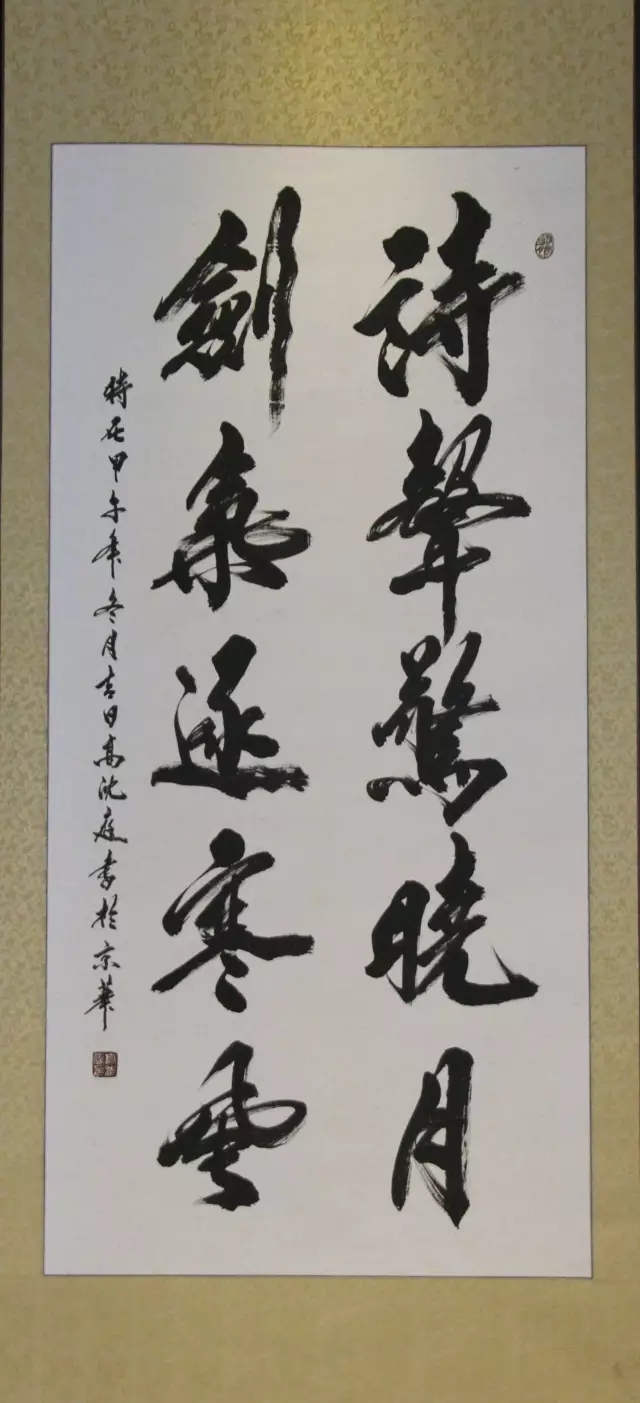 詩聲驚曉月
劍氣逐寒雲
時在甲午年冬月吉日高沈庭書於京華